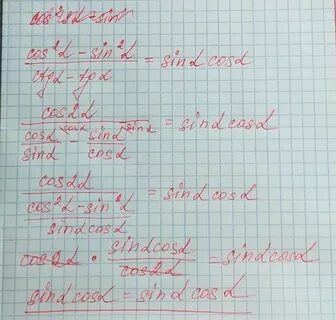 cos²α - sin²α / ctgα - tgα = sinα cosα
cos2α / (cosα^cosα / sinα - sinα^sinα / cosα) = sinα cosα
cos2α / (cos²α - sin²α / sinα cosα) = sinα cosα
cos2α · sinα cosα / cos2α = sinα cosα
sinα cosα = sinα cosα